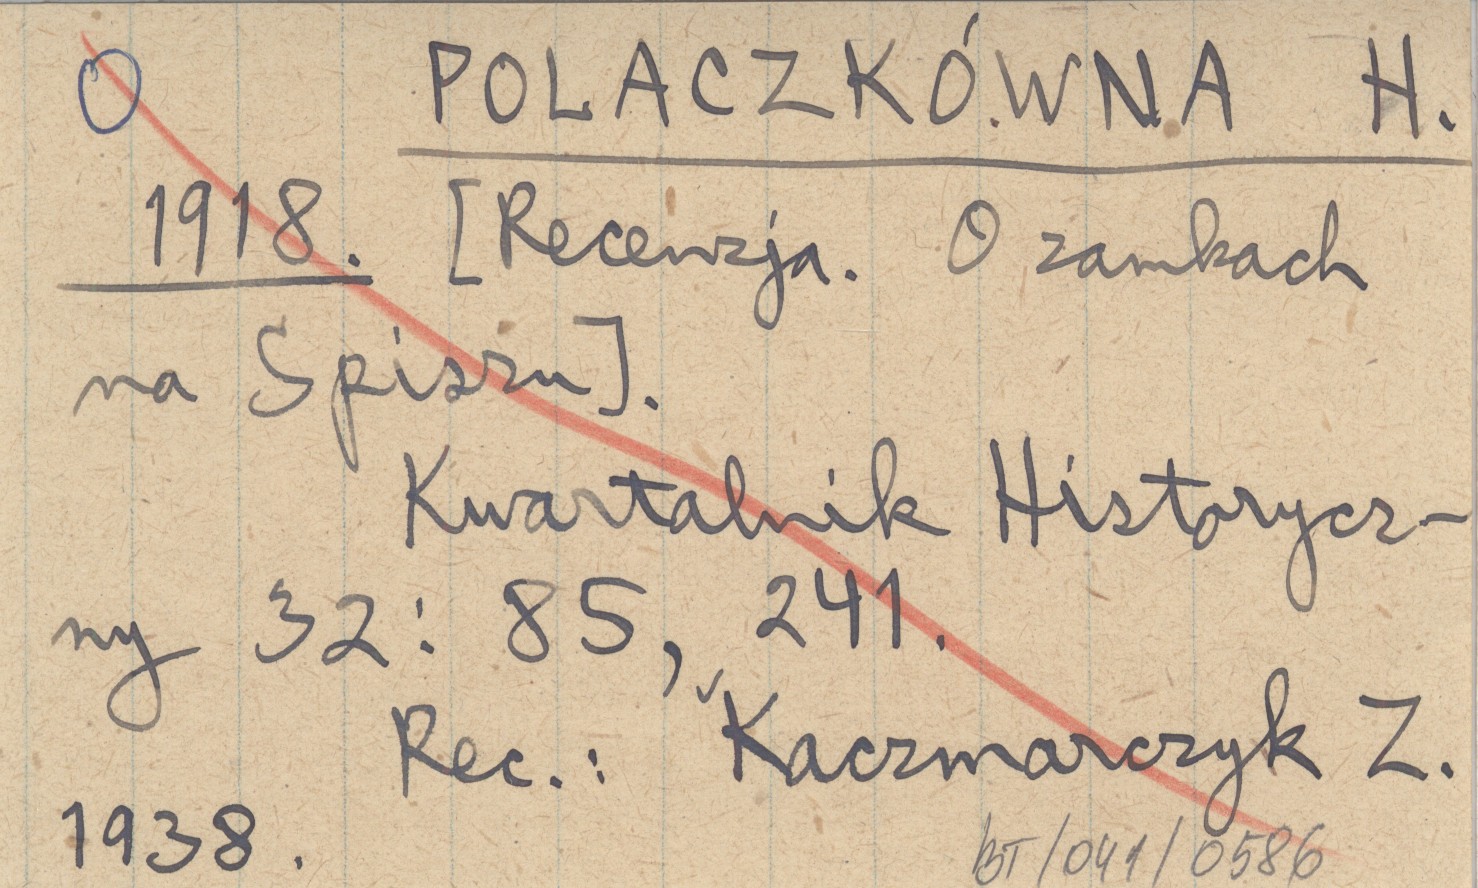 O POLACZKÓWNA H.
1918. [Recenzja. O zamkach
na Spiszu].
Kwartalnik Historycz-
ny 32: 85, 241.
Rec.: Kaczmarczyk Z.
1938.
BT/041/0586